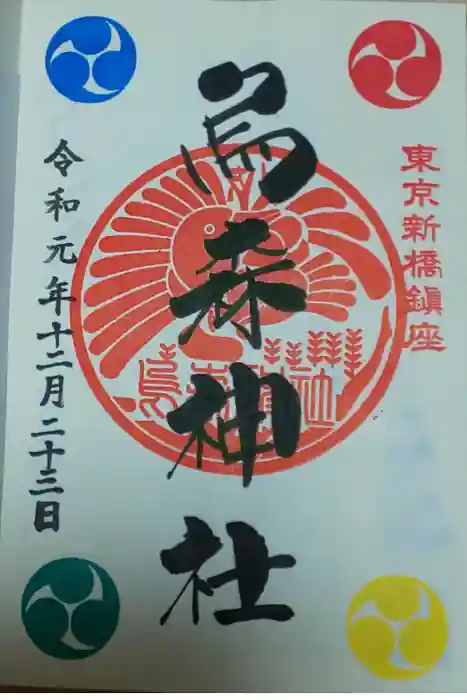 東京新橋鎮座
烏森神社
烏森神社
令和元年十二月二十三日